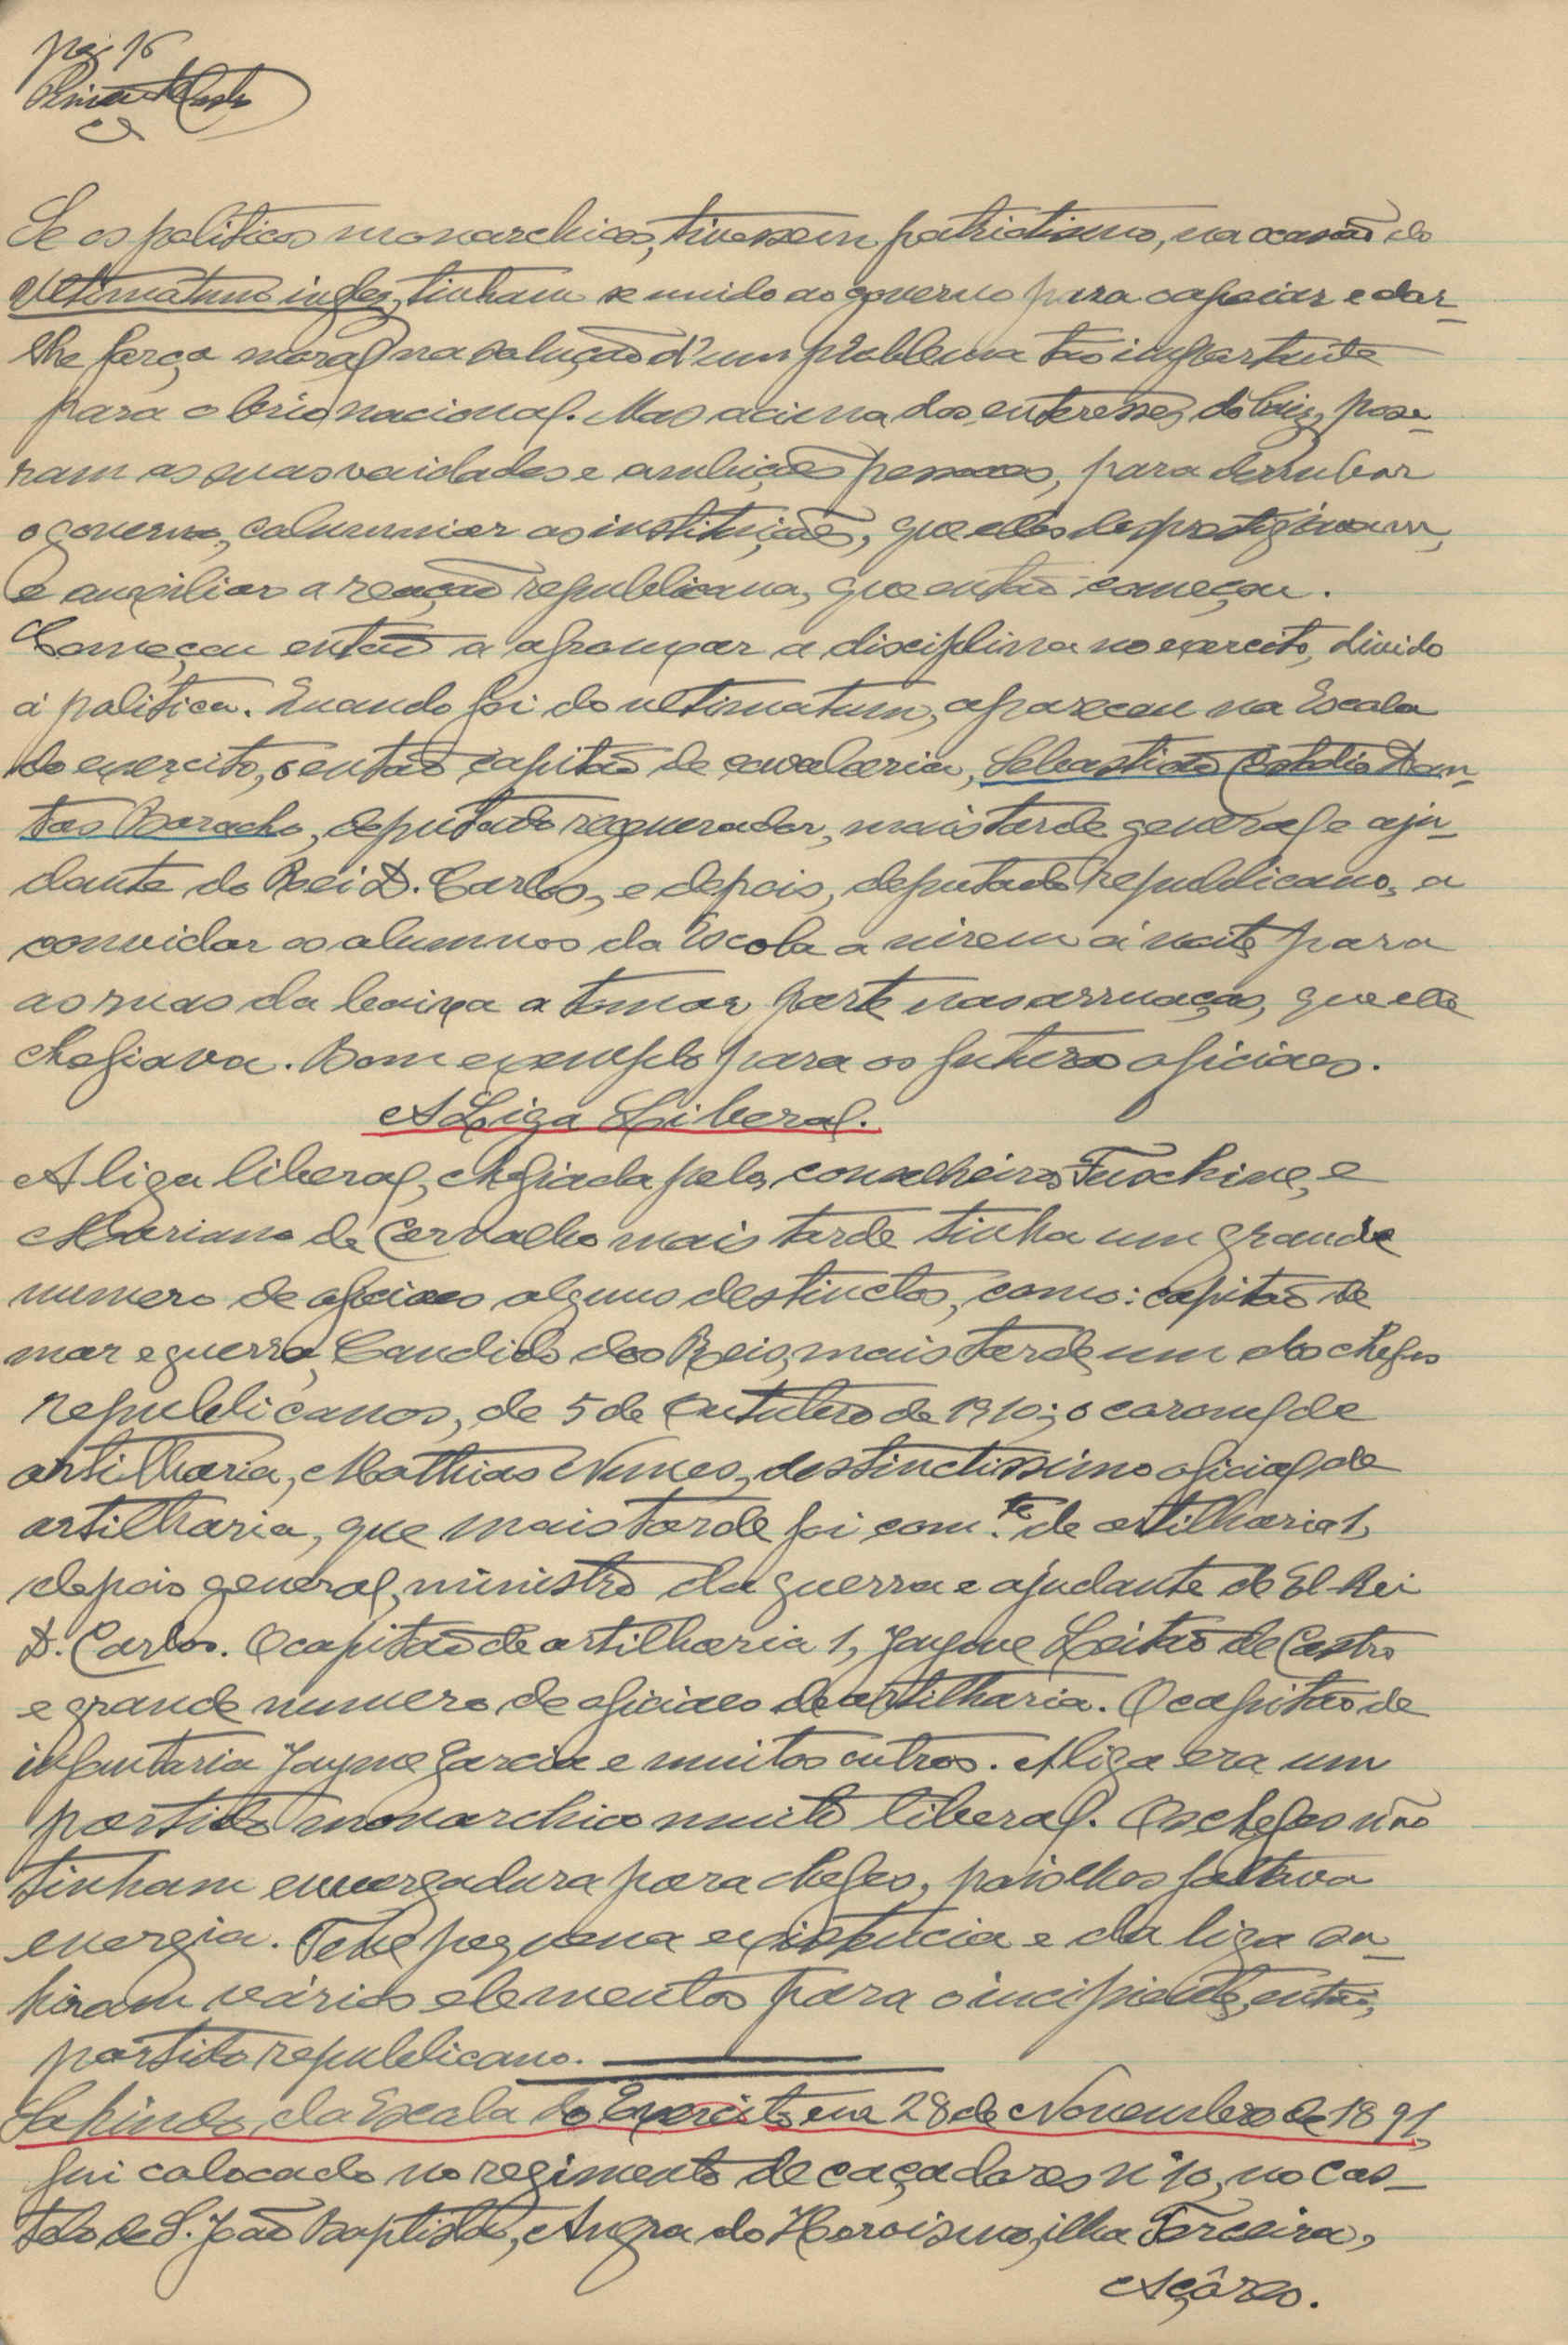 pag. 16
Se os politicos monarchicos, tivessem patriotismo, na ocasião do
Ultimatum inglez, tinham se unido ao governo para o apoiar e dar-
lhe força moral na solução d'um problema tão importante
para o brio nacional. Mas acima dos enteresses do Paiz, pose-
ram as suas vaidades e ambições pessoaes, para derrubar
o governo, calumniar as instituições, que elles desprestigiavam,
e auxiliar a reação republicana, que então começou.
Começou então a afrouxar a disciplina no exercito, divido
á politica. Quando foi do ultimatum, apareceu na Escola
do exercito, o então capitão de cavalaria, Sebastião Custodio Dan-
tas Baracho, deputado regenerador, mais tarde general e aju-
dante do Rei D. Carlos, e depois, deputado republicano, a
convidar os alumnos da Escola a virem á noite para
as ruas da baixa a tomar parte nas arruaças, que elle
chefiava. Bom exemplo para os futuros oficiaes.
A Liga Liberal.
A liga liberal, chefiada pelo, conselheiro Fuschine, e
Mariano de Carvalho mais tarde tinha um grande
numero de oficiaes alguns destinctos, como: capitão de
mar e guerra, Candido dos Reis, mais tarde, um dos chefes
republicanos, de 5 de Outubro de 1910; o coronel de
artilharia, Mathias Nunes, destinctissimo oficial de
artilharia, que mais tarde foi com.te de artilharia 1,
depois general, ministro da guerra e ajudante de El-Rei
D. Carlos. O capitão de artilharia 1, Jayme Leitão de Castro
e grande numero de oficiaes de artilharia. O capitão de
infantaria Jayme Garcia e muitos outros. A liga era um
partido monarchico muito liberal. Os chefes não
tinham envergadura para chefes, pois lhes faltava
energia. Teve pequena existencia e da liga sa-
hiram vários elementos para o incipiente, então,
partido republicano.
Sahindo da Escola do Exercito em 28 de Novembro de 1891,
fui colocado no regimento de caçadores nº 10, no cas-
telo de S. João Baptista, Angra do Heroismo, ilha Terceira,
Açôres.